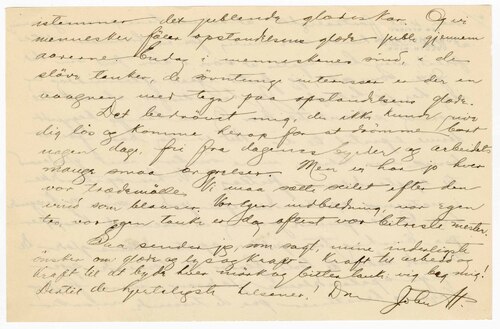 istemmer det jublende gladeskor. Og vi
mennesker føler opstandelsens glade jubl gjennem
aarerne. Endog i menneskenes sind, i de
sløve tanker, de interesser er der en
vaagnen med tegn paa opstandelsens glæde.
Det bedrøvet mig, du ikke kunde rive
dig løs og komme herop for at drømme bort
nogen dage, fri fra dagens byrder og arbeidets
mange smaa ærgrelser. Men vi har jo hver
vor trædemølle. Vi maa sætte seilet efter den
vind som blæser. Vor egen indbildning, vor egen
tro, vor egen tanke er dog oftest vor bitreste mester.
Saa sender jeg, som sagt, mine inderligste
ønsker om glæde og lys og kraft - kraft til arbeide og
kraft til at byde hver mørk og bitter tanke: vig bag mig!
Dertil de hjerteligste hilsener! Din John H.